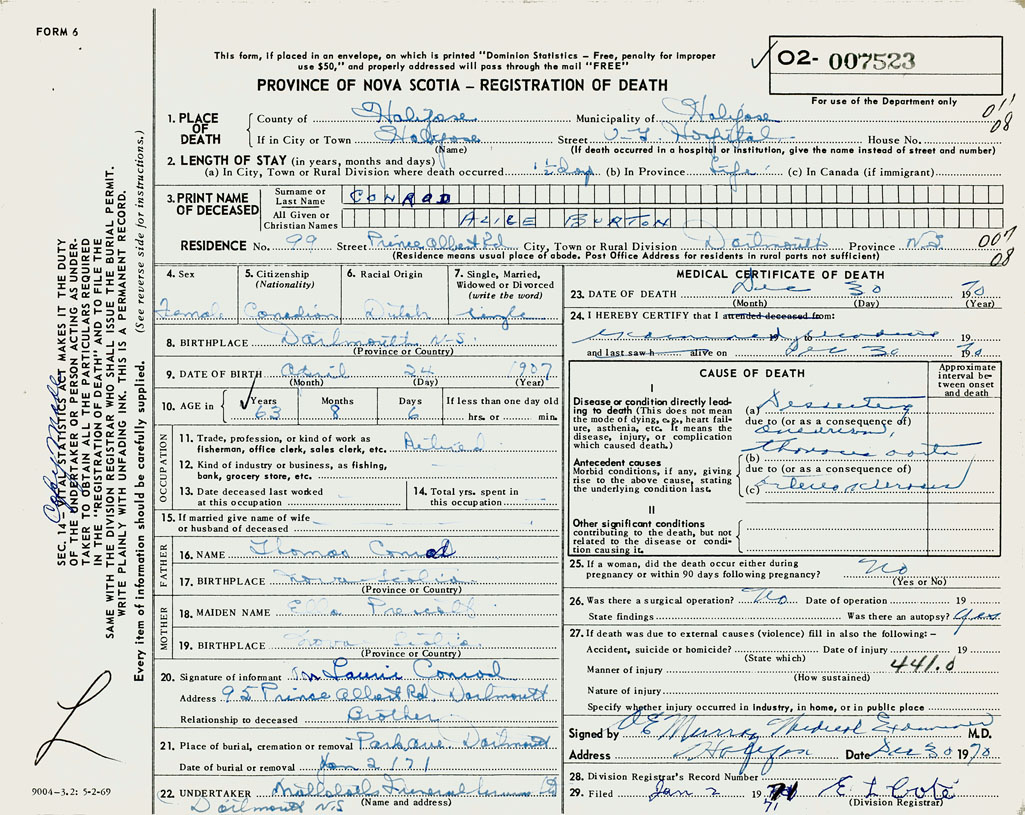 FORM 6
This form, if placed in an envelope, on which is printed "Dominion Statistics – Free, penalty for improper
use $50," and properly addressed will pass through the mail "FREE"
PROVINCE OF NOVA SCOTIA – REGISTRATION OF DEATH
O2- 007523
For use of the Department only
011
08
1. PLACE OF DEATH
County of Halifax Municipality of Halifax
If in City or Town Halifax Street V-G Hospital House No.
(Name) (If death occurred in a hospital or institution, give the name instead of street and number)
2. LENGTH OF STAY (in years, months and days)
(a) In City, Town or Rural Division where death occurred 1/2 day (b) In Province Life (c) In Canada (if immigrant)
3. PRINT NAME OF DECEASED
Surname or Last Name CONRAD
All Given or Christian Names ALICE BURTON
RESIDENCE No. 99 Street Prince Albert Rd City, Town or Rural Division Dartmouth Province N.S.
(Residence means usual place of abode. Post Office Address for residents in rural parts not sufficient)
007
08
4. Sex
Female
5. Citizenship
(Nationality)
Canadian
6. Racial Origin
Dutch
7. Single, Married,
Widowed or Divorced
(write the word)
Single
8. BIRTHPLACE Dartmouth N-S
(Province or Country)
9. DATE OF BIRTH April 24 1907
(Month) (Day) (Year)
10. AGE in Years Months Days If less than one day old
63 8 6 hrs. or min.
OCCUPATION
11. Trade, profession, or kind of work as
fisherman, office clerk, sales clerk, etc. Retired
12. Kind of industry or business, as fishing,
bank, grocery store, etc.
13. Date deceased last worked
at this occupation
14. Total yrs. spent in
this occupation
15. If married give name of wife
or husband of deceased
FATHER
16. NAME Thomas Conrad
17. BIRTHPLACE Nova Scotia
(Province or Country)
MOTHER
18. MAIDEN NAME Ella
19. BIRTHPLACE Nova Scotia
(Province or Country)
20. Signature of informant M Laurie Conrad
Address 95 Prince Albert Rd, Dartmouth
Relationship to deceased Brother
21. Place of burial, cremation or removal Dartmouth
Date of burial or removal Jan 2 / 71
22. UNDERTAKER Funeral
(Name and address)
Dartmouth N.S
MEDICAL CERTIFICATE OF DEATH
23. DATE OF DEATH Dec 30 1970
(Month) (Day) (Year)
24. I HEREBY CERTIFY that I attended deceased from:
examined to 19
and last saw h alive on Dec 30 1970
CAUSE OF DEATH
Approximate
interval be-
tween onset
and death
I
Disease or condition directly lead-
ing to death (This does not mean
the mode of dying, e.g., heart fail-
ure, asthenia, etc. It means the
disease, injury, or complication
which caused death.)
(a) Dissecting
due to (or as a consequence of)
aneurism,
Antecedent causes
Morbid conditions, if any, giving
rise to the above cause, stating
the underlying condition last.
(b) thoracic aorta
due to (or as a consequence of)
(c) arteriosclerosis
II
Other significant conditions
contributing to the death, but not
related to the disease or condi-
tion causing it.
25. If a woman, did the death occur either during
pregnancy or within 90 days following pregnancy? No
(Yes or No)
26. Was there a surgical operation? No Date of operation 19
State findings Was there an autopsy? Yes
27. If death was due to external causes (violence) fill in also the following: –
Accident, suicide or homicide? Date of injury 19
(State which)
441.0
Manner of injury
(How sustained)
Nature of injury
Specify whether injury occurred in industry, in home, or in public place
Signed by Murray Medical Examiner M.D.
Address Halifax Date Dec 30 1970
28. Division Registrar's Record Number
29. Filed Jan 2 19 71 E L Coté
(Division Registrar)
SEC. 14 – VITAL STATISTICS ACT MAKES IT THE DUTY
OF THE UNDERTAKER OR PERSON ACTING AS UNDER-
TAKER TO OBTAIN ALL THE PARTICULARS REQUIRED
IN THE "REGISTRATION OF DEATH" AND TO FILE THE
SAME WITH THE DIVISION REGISTRAR WHO SHALL ISSUE THE BURIAL PERMIT.
WRITE PLAINLY WITH UNFADING INK. THIS IS A PERMANENT RECORD.
Every item of information should be carefully supplied. (See reverse side for instructions.)
9004–3.2: 5-2-69